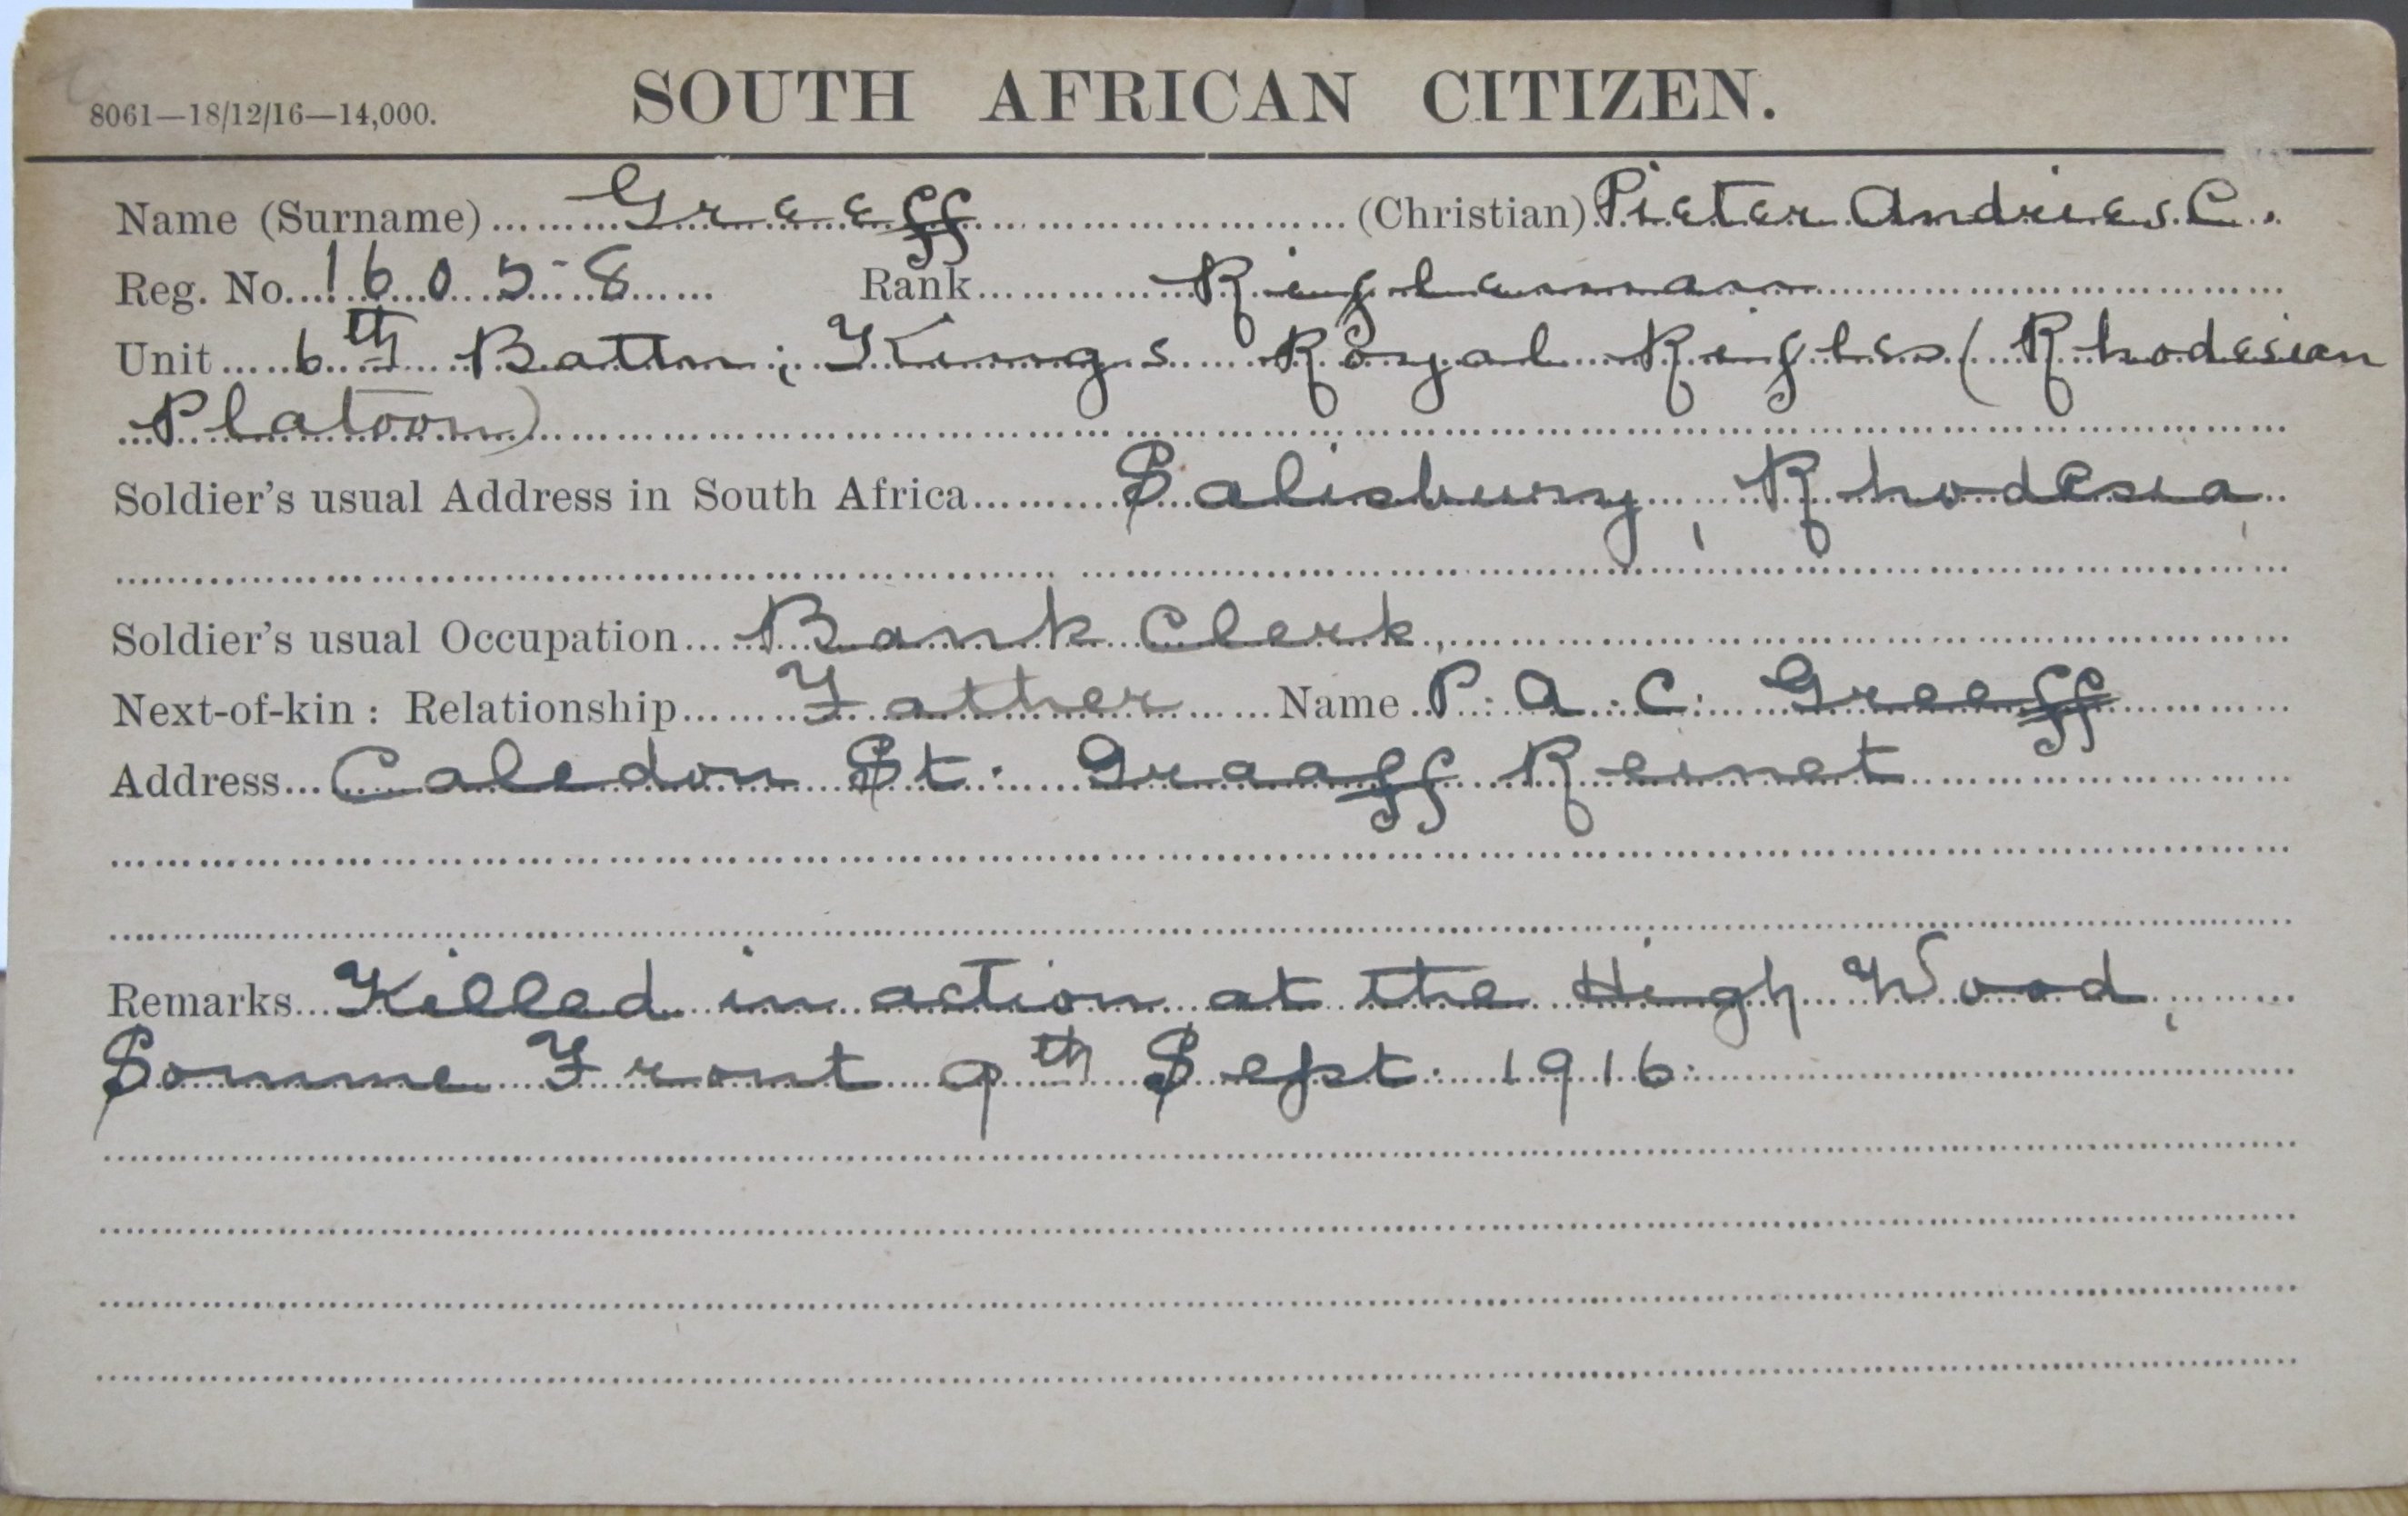 8061—18/12/16—14,000. SOUTH AFRICAN CITIZEN.
Name (Surname) Greeff (Christian) Pieter Andries C.
Reg. No. 16058 Rank Rifleman
Unit 6th Battn; Kings Royal Rifles (Rhodesian
Platoon)
Soldier's usual Address in South Africa Salisbury, Rhodesia,
Soldier's usual Occupation Bank Clerk,
Next-of-kin: Relationship Father Name P. A. C. Greeff
Address Caledon St. Graaff Reinet
Remarks Killed in action at the High Wood,
Somme Front 9th Sept. 1916.